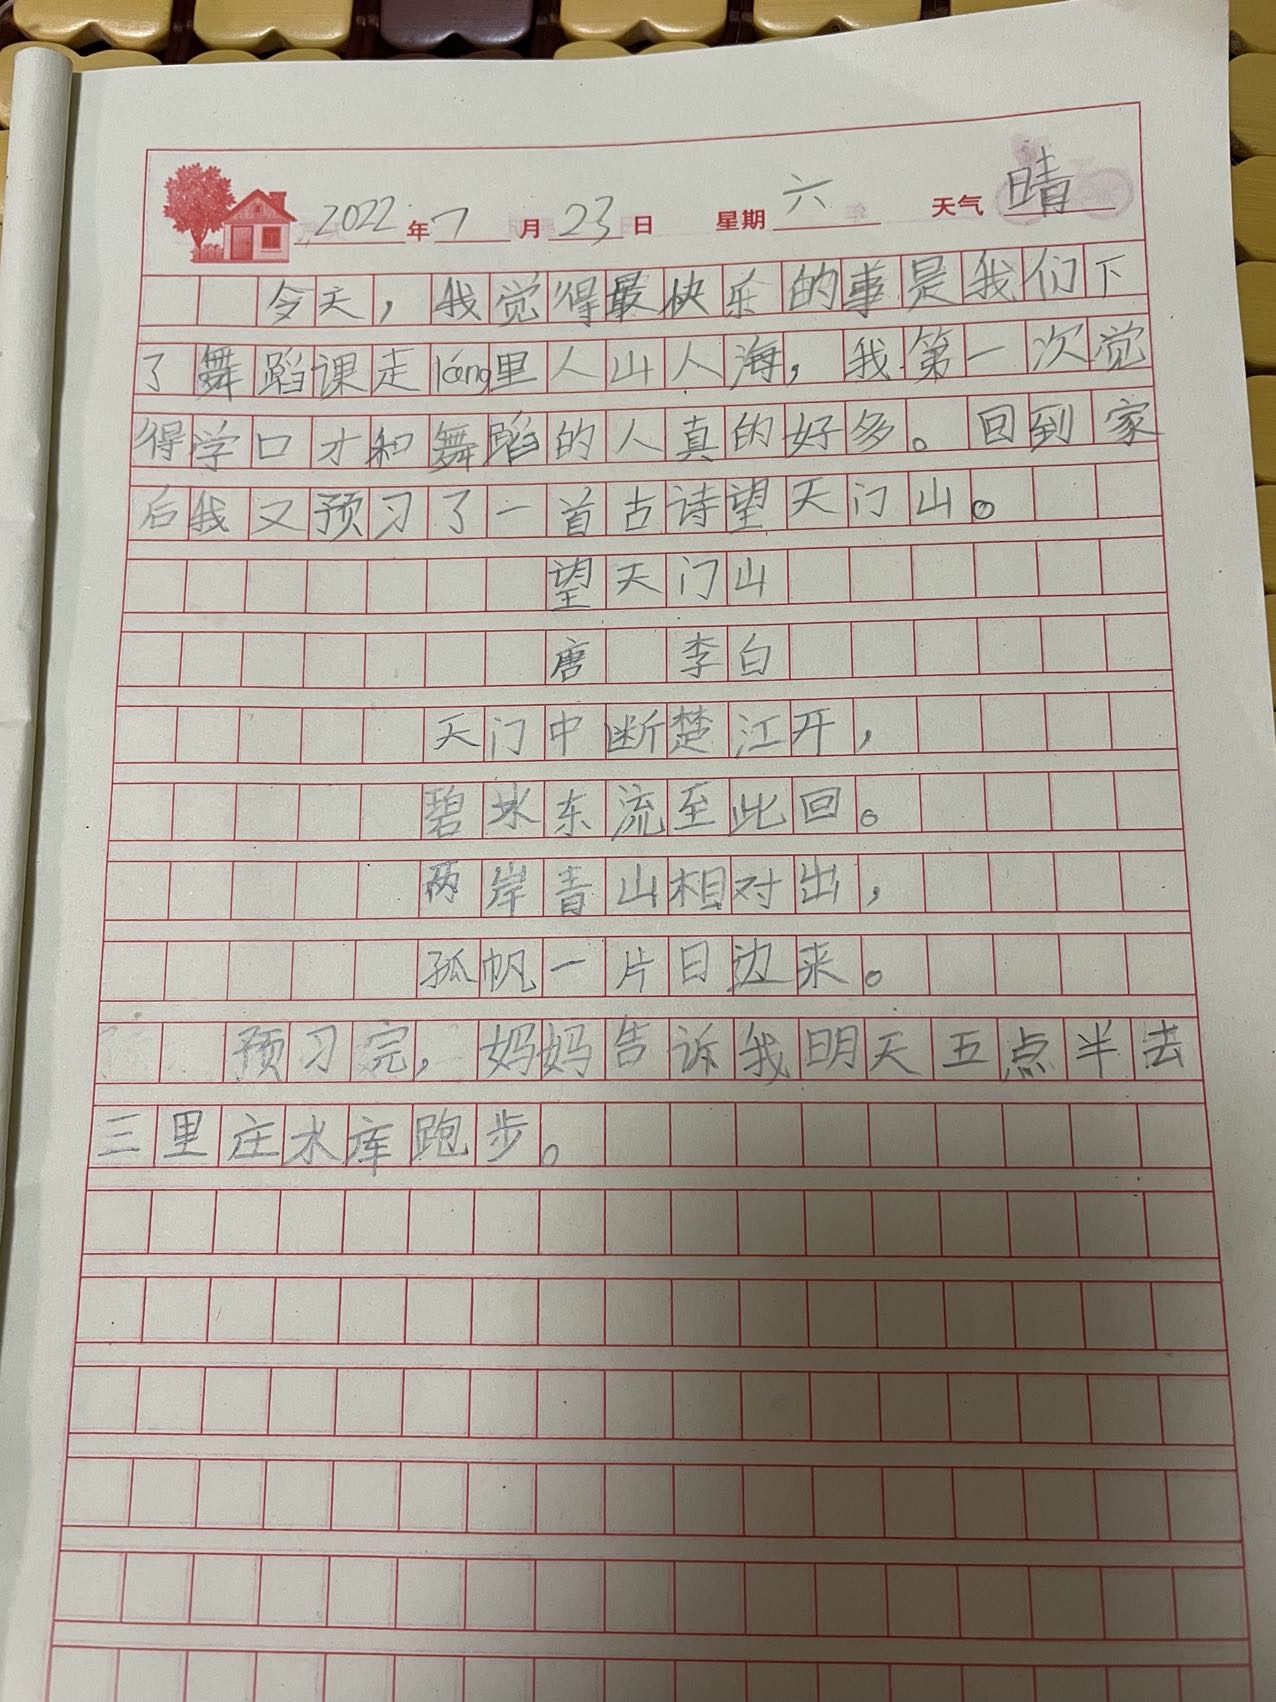 2022年7月23日 星期六 天气晴
今天，我觉得最快乐的事是我们下
了舞蹈课走láng里人山人海，我第一次觉
得学口才和舞蹈的人真的好多。回到家
后我又预习了一首古诗望天门山。
望天门山
唐 李白
天门中断楚江开，
碧水东流至此回。
两岸青山相对出，
孤帆一片日边来。
预习完，妈妈告诉我明天五点半去
三里庄水库跑步。